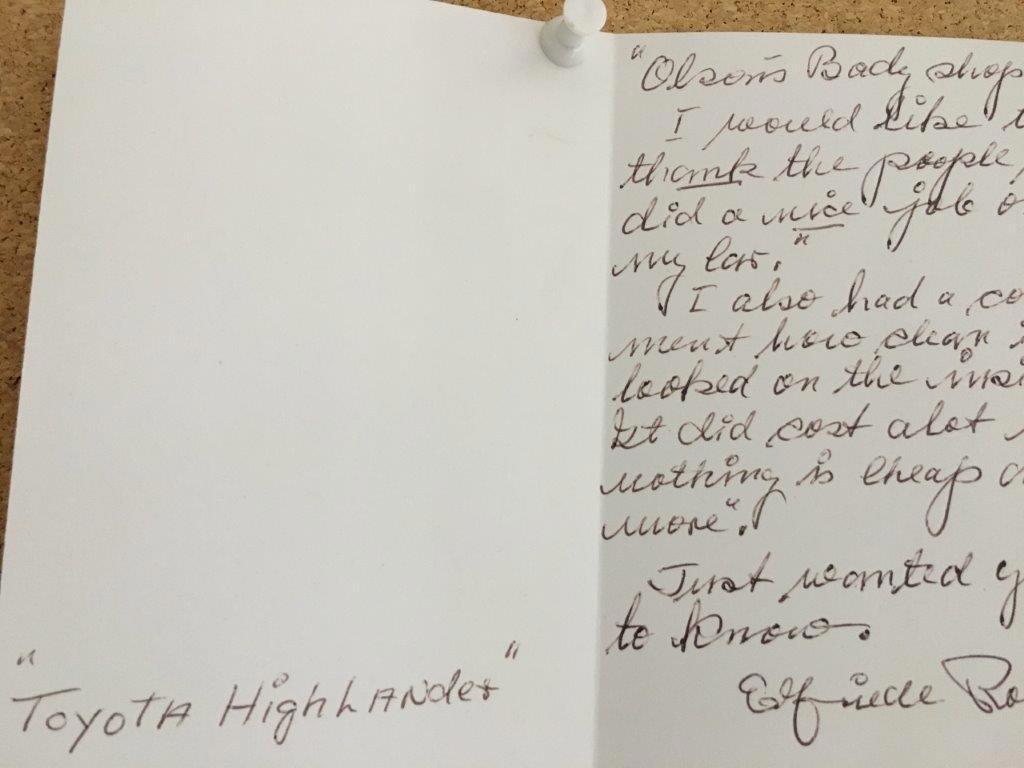 "Olson's Body shop
I would like t
thank the people
did a nice job o
my car."
I also had a co
ment how clean i
looked on the insi
It did cost alot
nothing is cheap a
more".
Just wanted y
to know.
Elfriede Ro
"Toyota Highlander"